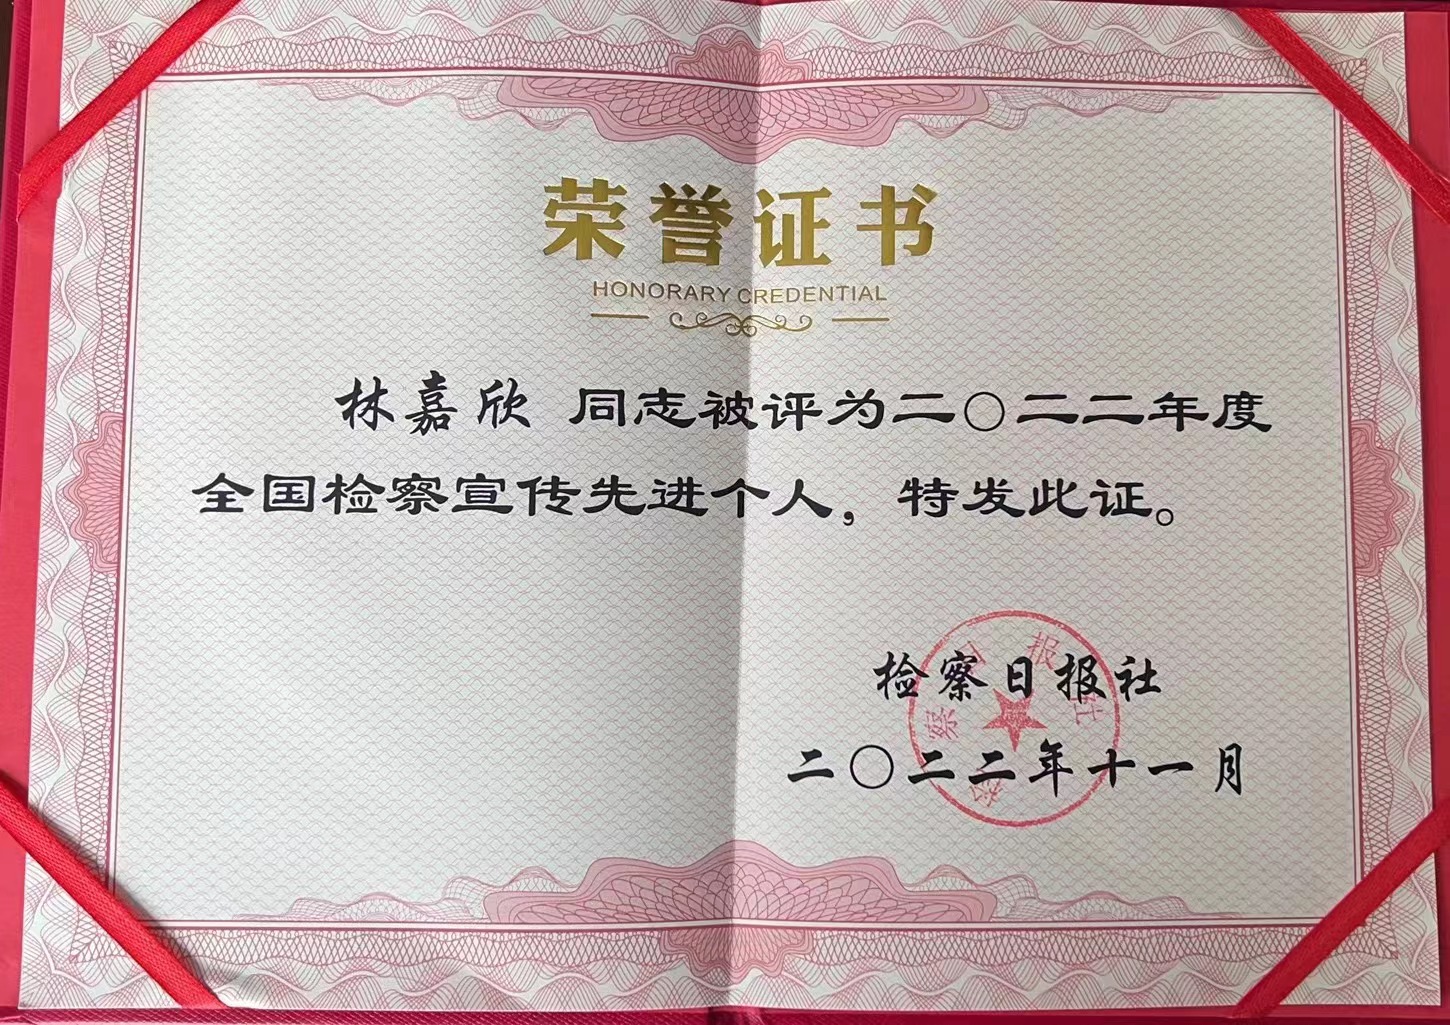 荣誉证书
HONORARY CREDENTIAL
林嘉欣 同志被评为二〇二二年度
全国检察宣传先进个人，特发此证。
检察日报社
二〇二二年十一月
检察日报社